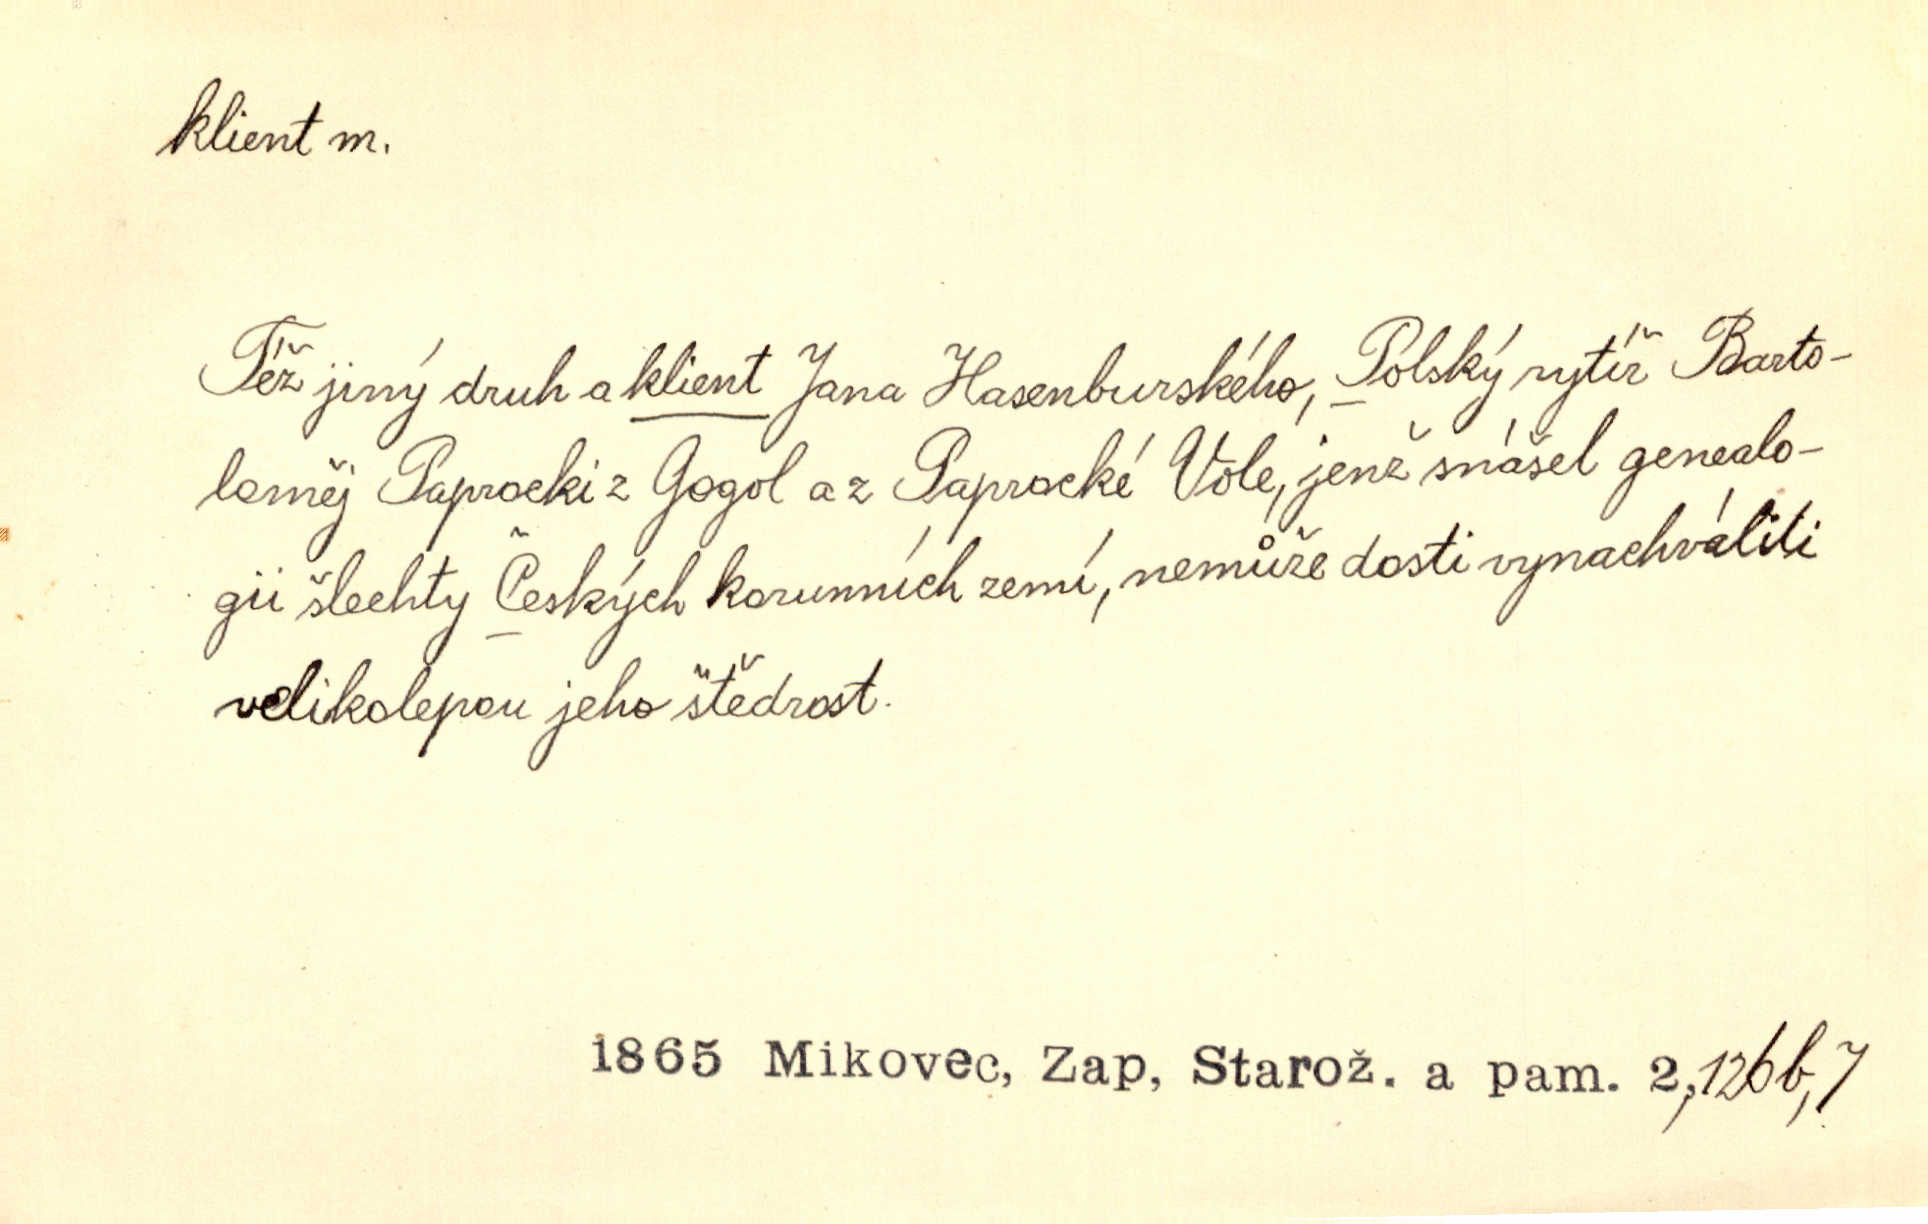 klient m.
Též jiný druh a klient Jana Hasenburského, Polský rytíř Barto-
loměj Paprocki z Gogol a z Paprocké Vole, jenž snášel genealo-
gii šlechty Českých korunních zemí, nemůže dosti vynachváliti
velikolepou jeho štědrost.
1865 Mikovec, Zap, Starož. a pam. 2, 126b, 7